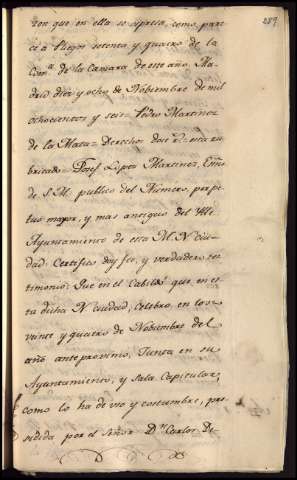 289
zon que en ella se expresa, como, pare
ce a Pliego setenta y quatro de la
Com.ª de la Camara de este año. Ma
drid diez y ocho de Nobiembre de mil
ochocientos y seis = Pedro Martinez
de la Mata = Derechos doce r.s esta ru
bricado = Josef Lopez Martinez, Esno
de S. M. publico del Numero, perpe
tuo mayor, y mas antiguo del Ylle
Ayuntamiento de esta M. N. ciu
dad: Certifico doy fee, y verdadero tes
timonio: Que en el Cabildo que en es
ta dicha N. ciudad, celebro, en los
veinte y quatro de Nobiembre del
año anteproximo, Junta en su
Ayuntamiento, y Sala Capitular,
como lo ha de vso y costumbre, pre
sidida por el Señor D.n Carlos De